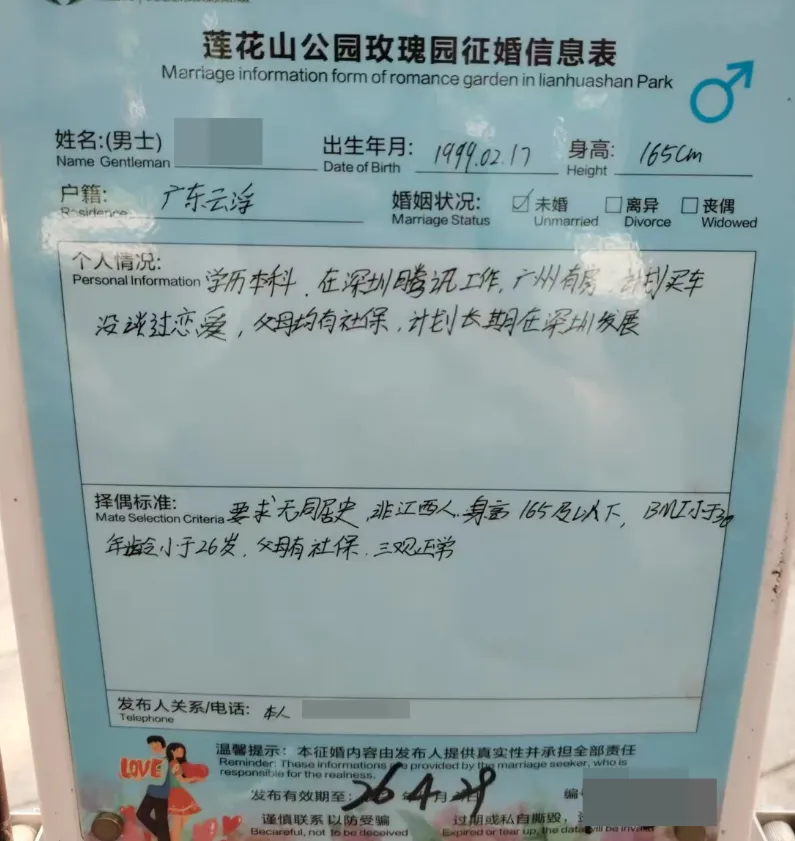 莲花山公园玫瑰园征婚信息表
Marriage information form of romance garden in lianhuashan Park
姓名:(男士) 出生年月: 1999.02.17 身高: 165cm
Name Gentleman Date of Birth Height
户籍: 广东云浮 婚姻状况: ☑未婚 □离异 □丧偶
Residence Marriage Status Unmarried Divorce Widowed
个人情况:
Personal Information 学历本科, 在深圳腾讯工作, 广州有房, 计划买车
没谈过恋爱, 父母均有社保, 计划长期在深圳发展
择偶标准:
Mate Selection Criteria 要求无同居史, 非江西人, 身高165及以下, BMI小于30
年龄小于26岁, 父母有社保, 三观正常
发布人关系/电话: 本人
Telephone
LOVE
温馨提示: 本征婚内容由发布人提供真实性并承担全部责任
Reminder: These information are provided by the marriage seeker, who is
responsible for the realness.
发布有效期至: 26 年 4 月 29 编
谨慎联系以防受骗 过期或私自撕毁,
Becareful, not to be deceived Expired or tear up, the data will be invalid